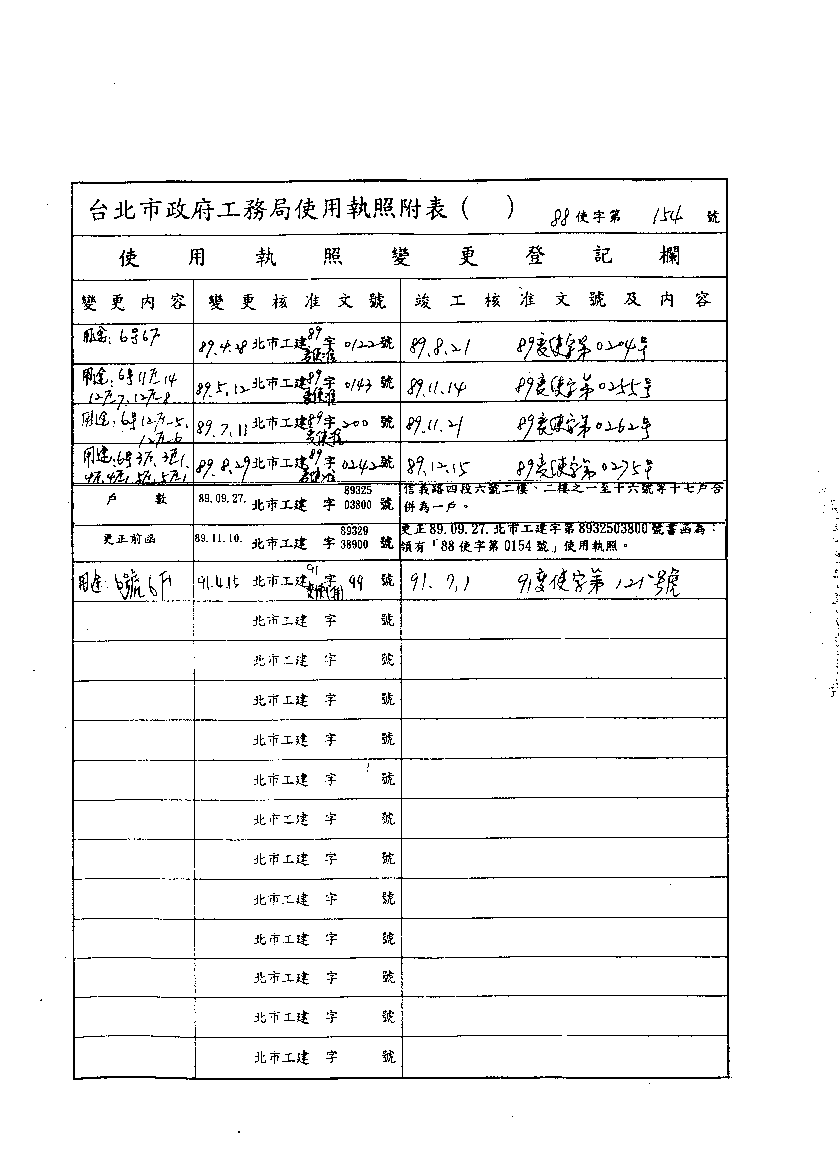 台北市政府工務局使用執照附表（　） 88使字第 154 號
使用執照變更登記欄
變更內容 變更核准文號 竣工核准文號及內容
用途：6号6F 89.4.28 北市工建 89 字 0122 號 89.8.21 89變使字第0204号
用途：6号11F-14 12F-7、12F-8 89.5.12 北市工建 89 字 0143 號 89.11.14 89變使字第0255号
用途：6号12F-5、 12F-6 89.7.11 北市工建 89 字 200 號 89.11.21 89變使字第0262号
用途：6号3F、3F-1、 4F、4F-1、5F、5F-1 89.8.29 北市工建 89 字 0242 號 89.12.15 89變使字第0275号
戶數 89.09.27. 北市工建 字 89325 03800 號 信義路四段六號二樓、二樓之一至十六號等十七戶合
併為一戶。
更正前函 89.11.10. 北市工建 字 89329 38900 號 更正89.09.27.北市工建字第8932503800號書函為：
領有「88使字第0154號」使用執照。
用途：6號6F 91.4.15 北市工建 91 字 99 號 91.7.1 91變使字第 號
北市工建 字 號
北市工建 字 號
北市工建 字 號
北市工建 字 號
北市工建 字 號
北市工建 字 號
北市工建 字 號
北市工建 字 號
北市工建 字 號
北市工建 字 號
北市工建 字 號
北市工建 字 號